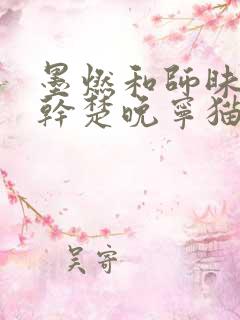 墨燃和師昧
幹楚晚寧猫
吴寄